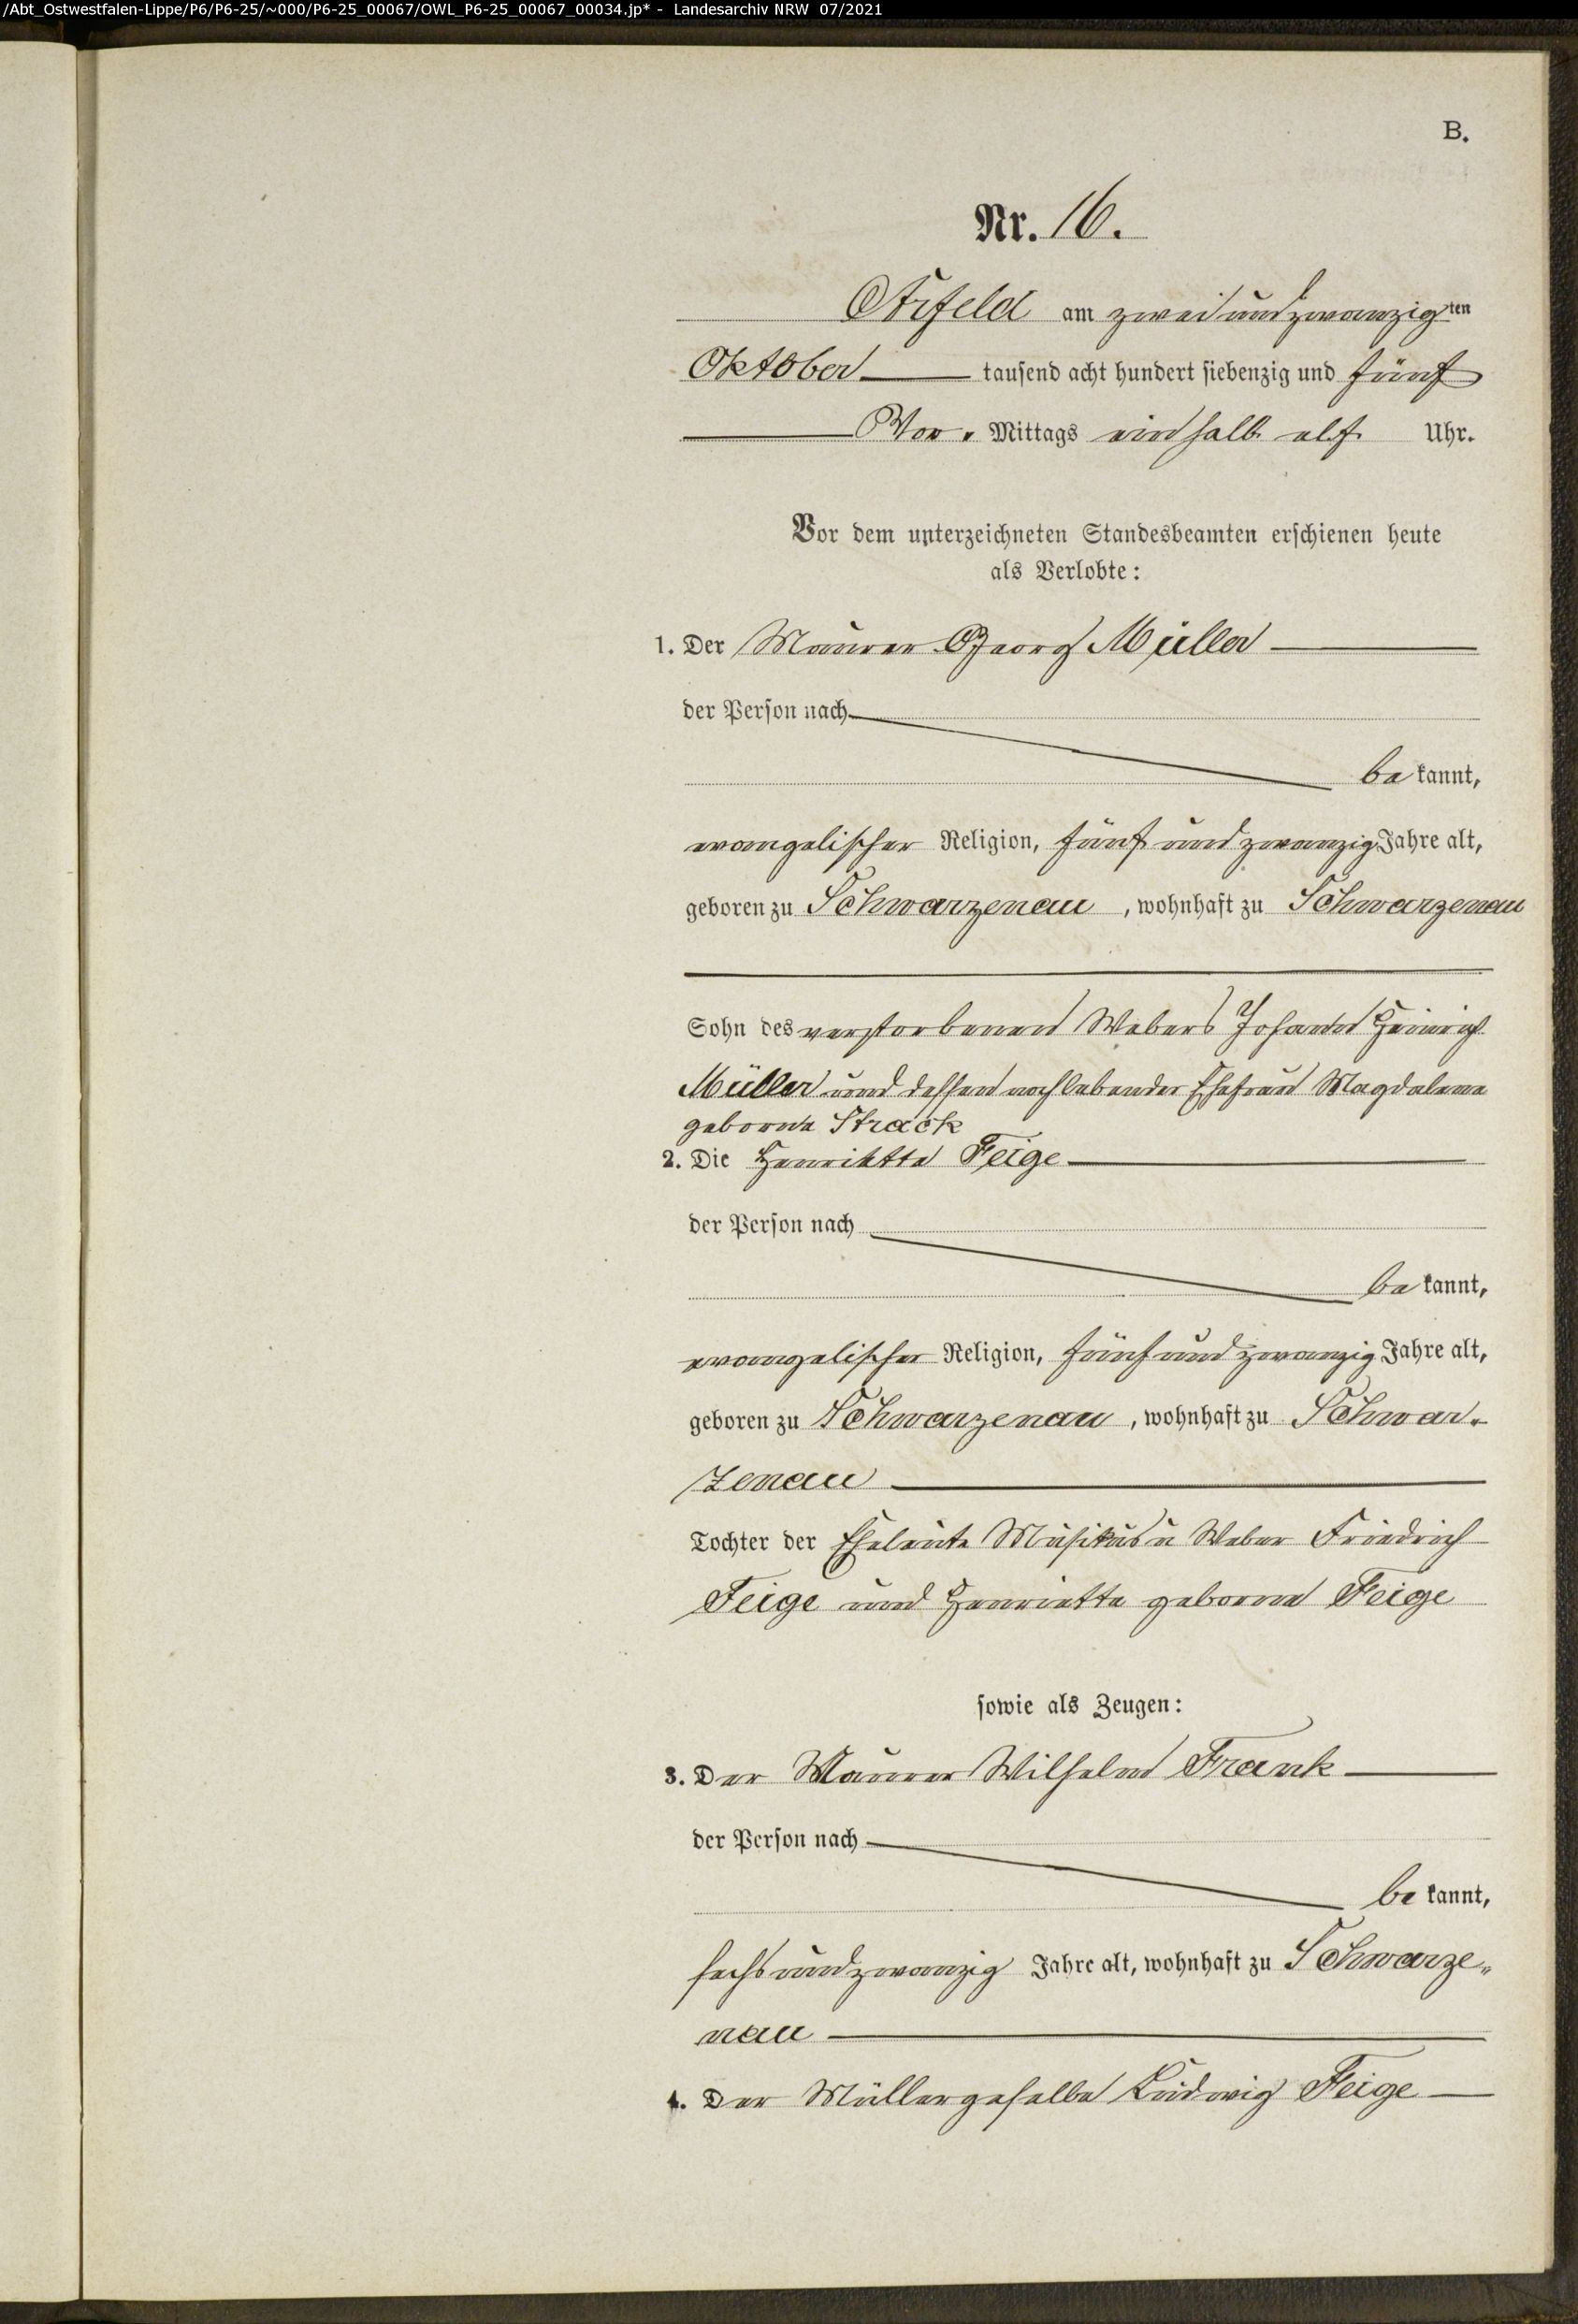 /Abt_Ostwestfalen-Lippe/P6/P6-25/~000/P6-25_00067/OWL_P6-25_00067_00034.jp* - Landesarchiv NRW 07/2021
B.
Nr. 16.
Arfeld am zwei und zwanzigten
Oktober tausend acht hundert siebenzig und fünf
Vor- Mittags ein halb elf Uhr.
Vor dem unterzeichneten Standesbeamten erschienen heute
als Verlobte:
1. Der Maurer Georg Müller
der Person nach
be kannt,
evangelischer Religion, fünf und zwanzig Jahre alt,
geboren zu Schwarzenau, wohnhaft zu Schwarzenau
Sohn des verstorbenen Webers Johann Heinrich
Müller und dessen noch lebender Ehefrau Magdalena
geborne Strack
2. Die Henriktte Feige
der Person nach
be kannt,
evangelischer Religion, fünf und zwanzig Jahre alt,
geboren zu Schwarzenau, wohnhaft zu Schwar-
zenau
Tochter der Eheleute Musikus u Weber Friedrich
Feige und Henriette geborne Feige
sowie als Zeugen:
3. Der Maurer Wilhelm Frank
der Person nach
be kannt,
sechs und zwanzig Jahre alt, wohnhaft zu Schwarze-
nau
4. Der Müllergeselle Ludwig Feige